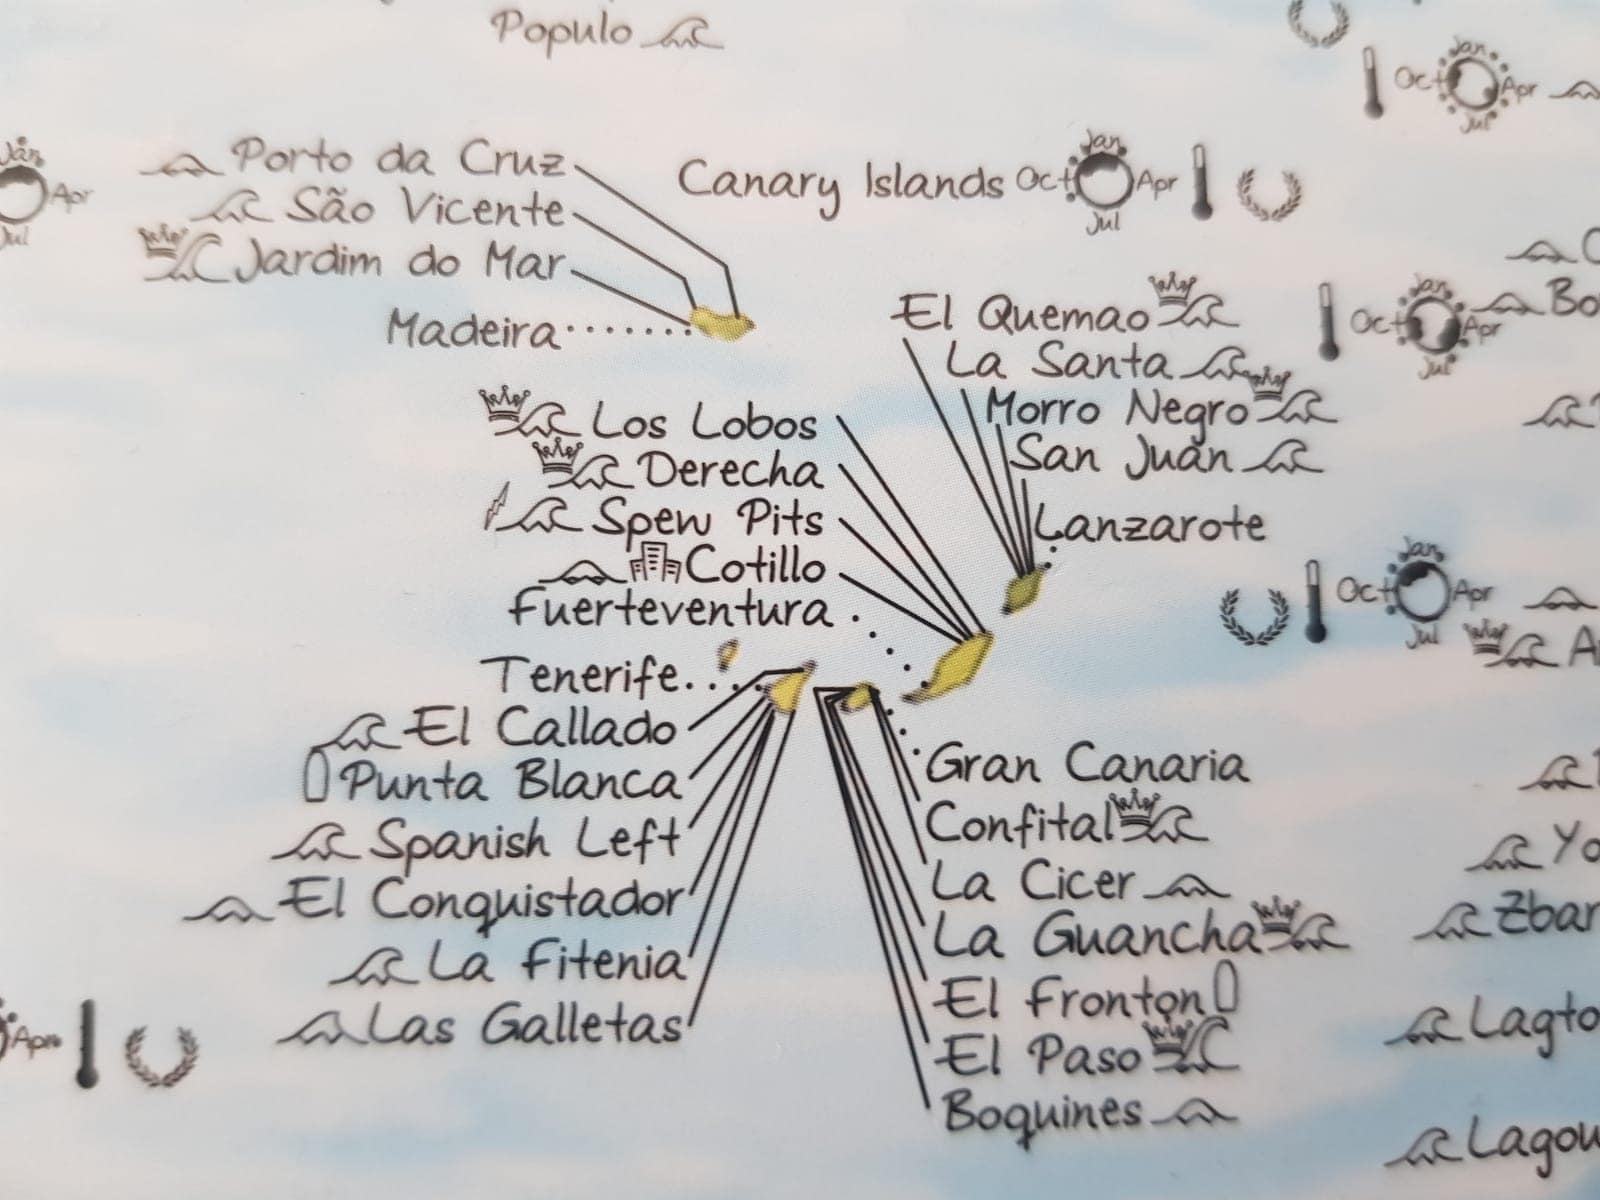 Populo
Jan
Oct Apr
Jul
Jan
Apr
Jul
Porto da Cruz
São Vicente
Jardim do Mar
Madeira
Canary Islands
Jan
Oct Apr
Jul
El Quemao
La Santa
Morro Negro
San Juan
Lanzarote
Jan
Oct Apr
Jul
Los Lobos
Derecha
Spew Pits
Cotillo
Fuerteventura
Jan
Oct Apr
Jul
Tenerife
El Callado
Punta Blanca
Spanish Left
El Conquistador
La Fitenia
Las Galletas
Gran Canaria
Confital
La Cicer
La Guancha
El Fronton
El Paso
Boquines
Apr
Bo
Yo
Zbar
Lagto
Lagou